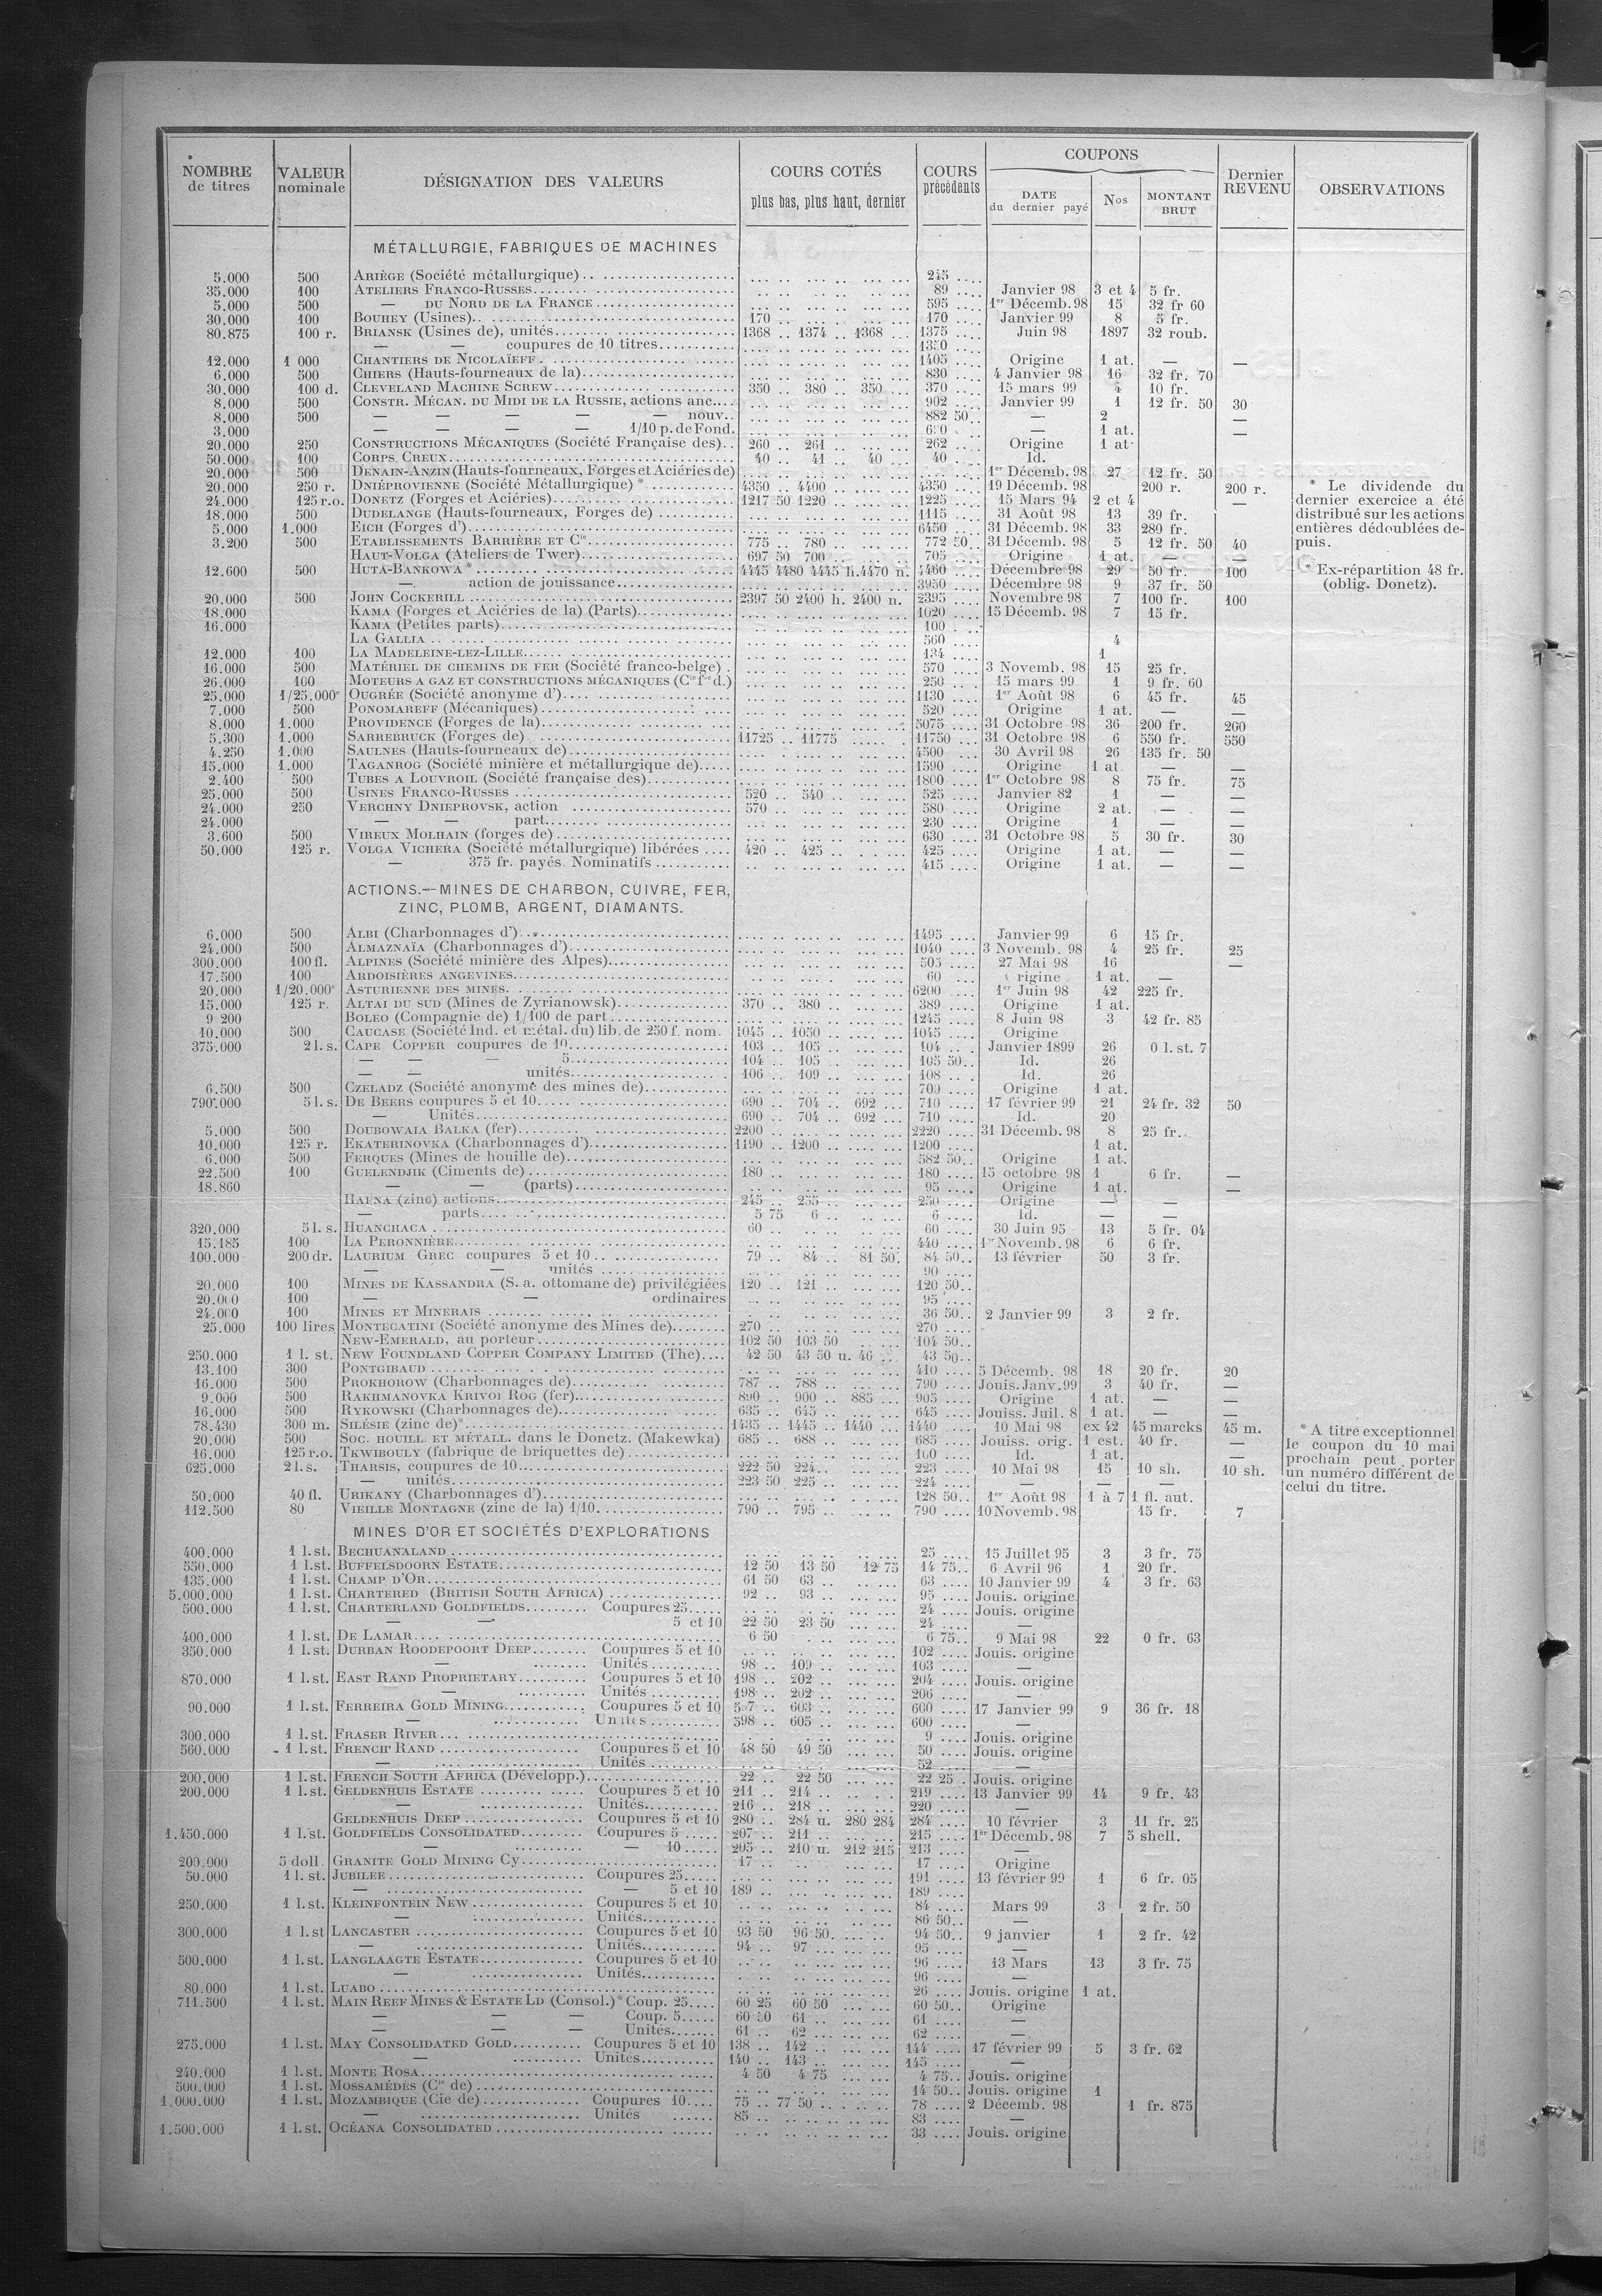 NOMBRE de titres VALEUR nominale DÉSIGNATION DES VALEURS COURS COTÉS plus bas, plus haut, dernier COURS précédents COUPONS DATE du dernier payé Nos MONTANT BRUT Dernier REVENU OBSERVATIONS
MÉTALLURGIE, FABRIQUES DE MACHINES
5.000 500 ARIÈGE (Société métallurgique) 245
35.000 100 ATELIERS FRANCO-RUSSES 89 Janvier 98 3 et 4 5 fr.
5.000 500 — DU NORD DE LA FRANCE 595 1er Décemb. 98 15 32 fr 60
30.000 100 BOUHEY (Usines) 170 170 Janvier 99 8 5 fr.
80.875 100 r. BRIANSK (Usines de), unités 1368 1374 1368 1375 Juin 98 1897 32 roub.
— — coupures de 10 titres 1350
12.000 1 000 CHANTIERS DE NICOLAÏEFF 1405 Origine 1 at. — —
6.000 500 CHIERS (Hauts-fourneaux de la) 830 4 Janvier 98 16 32 fr. 70
30.000 100 d. CLEVELAND MACHINE SCREW 350 380 350 370 15 mars 99 4 10 fr.
8.000 500 CONSTR. MÉCAN. DU MIDI DE LA RUSSIE, actions anc. 902 Janvier 99 1 12 fr. 50 30
8.000 500 — — — — — nouv. 882 50 — 2 —
3.000 — — — — 1/10 p. de Fond. — 1 at. —
20.000 250 CONSTRUCTIONS MÉCANIQUES (Société Française des) 260 261 262 Origine 1 at.
50.000 100 CORPS CREUX 40 41 40 40 Id.
20.000 500 DENAIN-ANZIN (Hauts-fourneaux, Forges et Aciéries de) 1er Décemb. 98 27 12 fr. 50
20.000 250 r. DNIÉPROVIENNE (Société Métallurgique) * 4350 4400 4350 19 Décemb. 98 200 r. 200 r. * Le dividende du
24.000 125 r.o. DONETZ (Forges et Aciéries) 1217 50 1220 1225 15 Mars 94 2 et 4 — dernier exercice a été
18.000 500 DUDELANGE (Hauts-fourneaux, Forges de) 1115 31 Août 98 13 39 fr. distribué sur les actions
5.000 1.000 EICH (Forges d') 6450 31 Décemb. 98 33 280 fr. entières dédoublées de-
3.200 500 ETABLISSEMENTS BARRIÈRE ET Cie 775 780 772 50 31 Décemb. 98 5 12 fr. 50 40 puis.
HAUT-VOLGA (Ateliers de Twer) 697 50 700 705 Origine 1 at. — —
12.600 500 HUTA-BANKOWA * 4445 4480 4445 h. 4470 n. 4460 Décembre 98 29 50 fr. 100 * Ex-répartition 48 fr.
— action de jouissance 3950 Décembre 98 9 37 fr. 50 (oblig. Donetz).
20.000 500 JOHN COCKERILL 2397 50 2400 h. 2400 n. 2395 Novembre 98 7 100 fr. 100
18.000 KAMA (Forges et Aciéries de la) (Parts) 1020 15 Décemb. 98 7 15 fr.
16.000 KAMA (Petites parts) 100
LA GALLIA 560 4
12.000 100 LA MADELEINE-LEZ-LILLE 134 1
16.000 500 MATÉRIEL DE CHEMINS DE FER (Société franco-belge) 570 3 Novemb. 98 15 25 fr.
26.000 100 MOTEURS A GAZ ET CONSTRUCTIONS MÉCANIQUES (Cie fse d.) 250 15 mars 99 1 9 fr. 60
25.000 1/25.000e OUGRÉE (Société anonyme d') 1130 1er Août 98 6 45 fr. 45
7.000 500 PONOMAREFF (Mécaniques) 520 Origine 1 at. — —
8.000 1.000 PROVIDENCE (Forges de la) 5075 31 Octobre 98 36 200 fr. 200
5.300 1.000 SARREBRUCK (Forges de) 11725 11775 11750 31 Octobre 98 6 550 fr. 550
4.250 1.000 SAULNES (Hauts-fourneaux de) 4500 30 Avril 98 26 135 fr. 50
15.000 1.000 TAGANROG (Société minière et métallurgique de) 1590 Origine 1 at. — —
2.400 500 TUBES A LOUVROIL (Société française des) 1800 1er Octobre 98 8 75 fr. 75
25.000 500 USINES FRANCO-RUSSES 520 540 525 Janvier 82 1 — —
24.000 250 VERCHNY DNIEPROVSK, action 570 580 Origine 2 at. — —
24.000 — — part 230 Origine 1 — —
3.600 500 VIREUX MOLHAIN (forges de) 630 31 Octobre 98 5 30 fr. 30
50.000 125 r. VOLGA VICHERA (Société métallurgique) libérées 420 425 425 Origine 1 at. — —
— 375 fr. payés. Nominatifs 415 Origine 1 at. — —
ACTIONS.—MINES DE CHARBON, CUIVRE, FER,
ZINC, PLOMB, ARGENT, DIAMANTS.
6.000 500 ALBI (Charbonnages d') 1495 Janvier 99 6 15 fr.
24.000 500 ALMAZNAÏA (Charbonnages d') 1040 3 Novemb. 98 4 25 fr. 25
300.000 100 fl. ALPINES (Société minière des Alpes) 505 27 Mai 98 16 —
17.500 100 ARDOISIÈRES ANGEVINES 60 rigine 1 at. —
20.000 1/20.000e ASTURIENNE DES MINES 6200 1er Juin 98 42 225 fr.
15.000 125 r. ALTAI DU SUD (Mines de Zyrianowsk) 370 380 389 Origine 1 at.
9 200 BOLEO (Compagnie de) 1/100 de part 1245 8 Juin 98 3 42 fr. 85
10.000 500 CAUCASE (Société Ind. et métal. du) lib. de 250 f. nom. 1045 1050 1045 Origine
375.000 2 l. s. CAPE COPPER coupures de 10 103 105 104 Janvier 1899 26 0 l. st. 7
— — — 5 104 105 105 50 Id. 26
— — unités 106 109 108 Id. 26
6.500 500 CZELADZ (Société anonyme des mines de) 700 Origine 1 at.
790.000 5 l. s. DE BEERS coupures 5 et 10 690 704 692 710 17 février 99 21 24 fr. 32 50
— Unités 690 704 692 710 Id. 20
5.000 500 DOUBOWAIA BALKA (fer) 2200 2220 31 Décemb. 98 8 25 fr.
10.000 125 r. EKATERINOVKA (Charbonnages d') 1190 1200 1200 1 at.
6.000 500 FERQUES (Mines de houille de) 582 50 Origine 1 at.
22.500 100 GUELENDJIK (Ciments de) 180 180 15 octobre 98 1 6 fr. —
18.860 — — (parts) 95 Origine 1 at. —
HAENA (zinc) actions 245 255 250 Origine — —
— parts 5 75 6 6 Id. — —
320.000 5 l. s. HUANCHACA 60 60 30 Juin 95 13 5 fr. 04
15.185 100 LA PERONNIÈRE 440 1er Novemb. 98 6 6 fr.
100.000 200 dr. LAURIUM GREC coupures 5 et 10 79 84 81 50 84 50 13 février 50 3 fr.
— — unités 90
20.000 100 MINES DE KASSANDRA (S. a. ottomane de) privilégiées 120 121 120 50
20.000 100 — — ordinaires 95
24.000 100 MINES ET MINERAIS 36 50 2 Janvier 99 3 2 fr.
25.000 100 lires MONTECATINI (Société anonyme des Mines de) 270 270
NEW-EMERALD, au porteur 102 50 103 50 104 50
250.000 1 l. st. NEW FOUNDLAND COPPER COMPANY LIMITED (The) 42 50 43 50 u. 46 43 50
13.100 300 PONTGIBAUD 410 5 Décemb. 98 18 20 fr. 20
16.000 500 PROKHOROW (Charbonnages de) 787 788 790 Jouis. Janv. 99 3 40 fr. —
9.000 500 RAKHMANOVKA KRIVOI ROG (fer) 890 900 885 905 Origine 1 at. — —
16.000 500 RYKOWSKI (Charbonnages de) 635 645 645 Jouiss. Juil. 8 1 at. — —
78.430 300 m. SILÉSIE (zinc de)* 1435 1445 1440 1440 10 Mai 98 ex 42 45 marcks 45 m. * A titre exceptionnel
20.000 500 SOC. HOUILL. ET MÉTALL. dans le Donetz. (Makewka) 685 688 685 Jouiss. orig. 1 est. 40 fr. — le coupon du 10 mai
16.000 125 r.o. TKWIBOULY (fabrique de briquettes de) 160 Id. 1 at. — prochain peut porter
625.000 2 l. s. THARSIS, coupures de 10 222 50 224 223 10 Mai 98 15 10 sh. 10 sh. un numéro différent de
— unités 223 50 225 224 — — — celui du titre.
50.000 40 fl. URIKANY (Charbonnages d') 128 50 1er Août 98 1 à 7 1 fl. aut.
112.500 80 VIEILLE MONTAGNE (zinc de la) 1/10 790 795 790 10 Novemb. 98 15 fr. 7
MINES D'OR ET SOCIÉTÉS D'EXPLORATIONS
400.000 1 l. st. BECHUANALAND 25 15 Juillet 95 3 3 fr. 75
550.000 1 l. st. BUFFELSDOORN ESTATE 12 50 13 50 12 75 14 75 6 Avril 96 1 20 fr.
135.000 1 l. st. CHAMP D'OR 61 50 63 63 10 Janvier 99 4 3 fr. 63
5.000.000 1 l. st. CHARTERED (BRITISH SOUTH AFRICA) 92 93 95 Jouis. origine
500.000 1 l. st. CHARTERLAND GOLDFIELDS Coupures 25 24 Jouis. origine
— — 5 et 10 22 50 23 50 24 —
400.000 1 l. st. DE LAMAR 6 50 6 75 9 Mai 98 22 0 fr. 63
350.000 1 l. st. DURBAN ROODEPOORT DEEP Coupures 5 et 10 102 Jouis. origine
— Unités 98 109 103 —
870.000 1 l. st. EAST RAND PROPRIETARY Coupures 5 et 10 198 202 204 Jouis. origine
— Unités 198 202 206 —
90.000 1 l. st. FERREIRA GOLD MINING Coupures 5 et 10 597 603 600 17 Janvier 99 9 36 fr. 18
— Unités 598 605 600 —
300.000 1 l. st. FRASER RIVER 9 Jouis. origine
560.000 1 l. st. FRENCH RAND Coupures 5 et 10 48 50 49 50 50 Jouis. origine
— Unités 52 —
200.000 1 l. st. FRENCH SOUTH AFRICA (Développ.) 22 22 50 22 25 Jouis. origine
200.000 1 l. st. GELDENHUIS ESTATE Coupures 5 et 10 211 214 219 13 Janvier 99 14 9 fr. 43
— Unités 216 218 220 —
GELDENHUIS DEEP Coupures 5 et 10 280 284 u. 280 284 284 10 février 3 11 fr. 25
1.450.000 1 l. st. GOLDFIELDS CONSOLIDATED Coupures 5 207 211 215 1er Décemb. 98 7 5 shell.
— — 10 205 210 u. 212 215 213 —
200.000 5 doll. GRANITE GOLD MINING Cy 17 17 Origine
50.000 1 l. st. JUBILEE Coupures 25 191 13 février 99 1 6 fr. 05
— — 5 et 10 189 189
250.000 1 l. st. KLEINFONTEIN NEW Coupures 5 et 10 84 Mars 99 3 2 fr. 50
— Unités 86 50 —
300.000 1 l. st LANCASTER Coupures 5 et 10 93 50 96 50 94 50 9 janvier 1 2 fr. 42
— Unités 94 97 95 —
500.000 1 l. st. LANGLAAGTE ESTATE Coupures 5 et 10 96 13 Mars 13 3 fr. 75
— Unités 96 —
80.000 1 l. st. LUABO 26 Jouis. origine 1 at.
711.500 1 l. st. MAIN REEF MINES & ESTATE LD (Consol.)* Coup. 25 60 25 60 50 60 50 Origine
— — — Coup. 5 60 50 61 61 —
— — — Unités 61 62 62 —
275.000 1 l. st. MAY CONSOLIDATED GOLD Coupures 5 et 10 138 142 144 17 février 99 5 3 fr. 62
— Unités 140 143 145 —
240.000 1 l. st. MONTE ROSA 4 50 4 75 4 75 Jouis. origine
500.000 1 l. st. MOSSAMÉDÈS (Cie de) 14 50 Jouis. origine 1
1.000.000 1 l. st. MOZAMBIQUE (Cie de) Coupures 10 75 77 50 78 2 Décemb. 98 1 fr. 875
— Unités 85 83 —
1.500.000 1 l. st. OCÉANA CONSOLIDATED 33 Jouis. origine